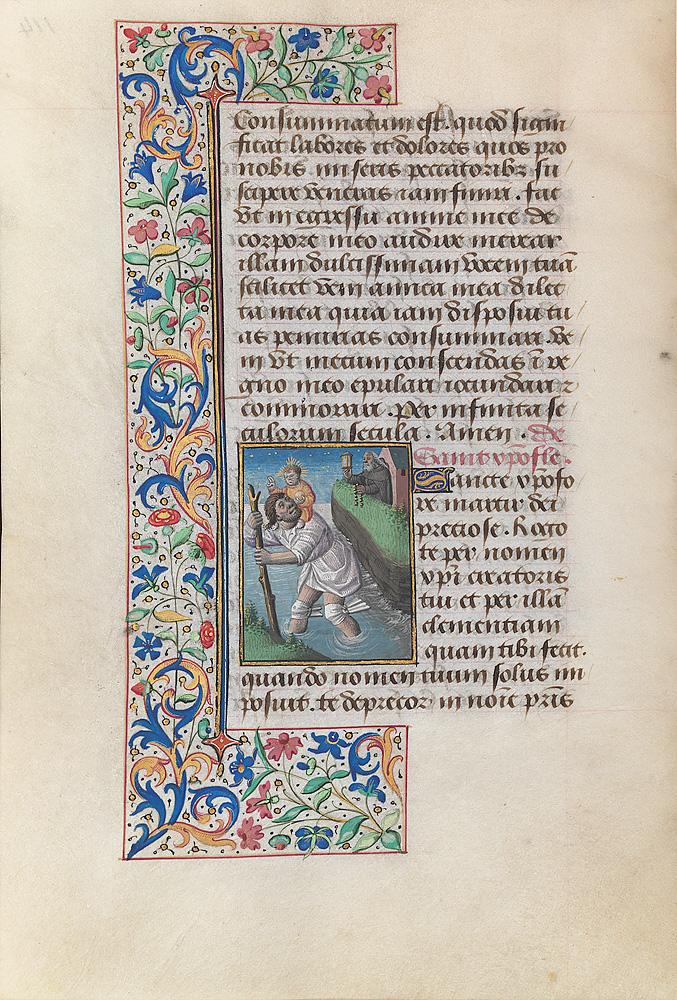 Consummatum est. quod signi
ficat labores et dolores quos pro
nobis miseris peccatoribz su
scipere veneras iam finiri. Fac
vt in egressu anime mee de
corpore meo audire merear
illam dulcissimam vocem tuā
scilicet veni amica mea dilec
ta mea quia iam disposui tu
as penitus consummare ve
ni vt mecum conscendas ī re
gno meo epulari iocundari z
commorari. Per infinita se
culorum secula. Amen. de
Saint xpofle.
Sancte xpofo
re martir dei
preciose. Rogo
te per nomen
xpi creatoris
tui et per illā
clementiam
quam tibi fecit.
quando nomen tuum solus im
posuit. te deprecor in noīe pr̄is
114